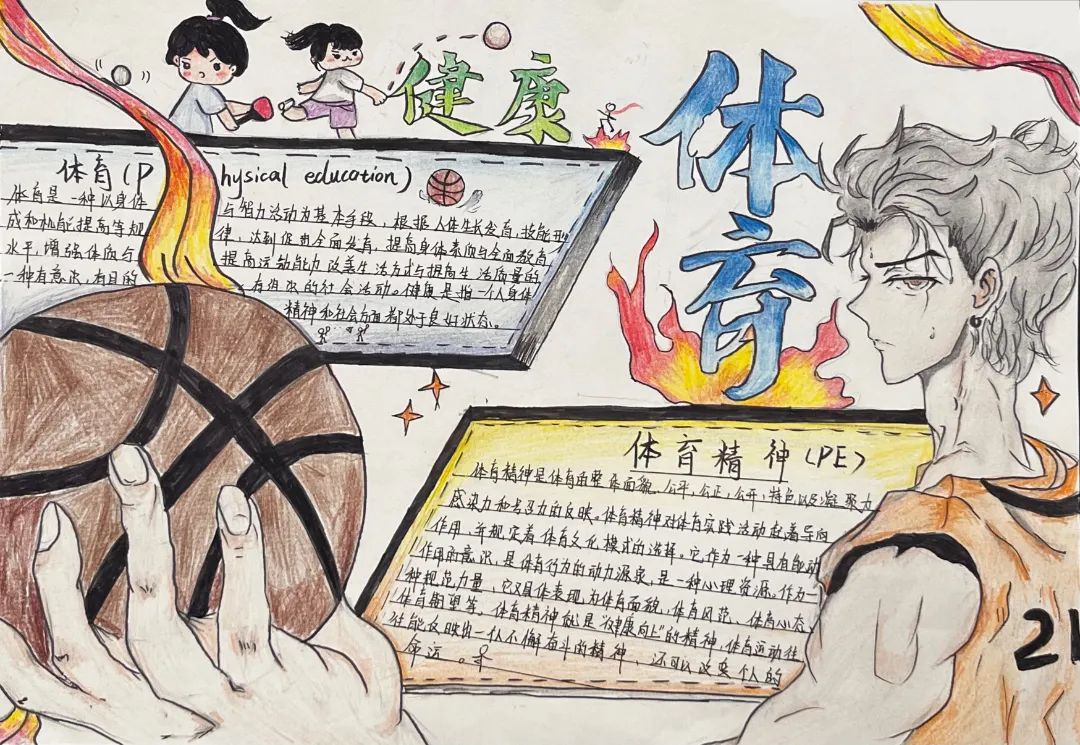 健康
体育
体育(Physical education)
体育是一种以身体与智力活动为基本手段，根据人体生长发育，技能形
成和机能提高等规律，达到促进全面发育，提高身体素质与全面教育
水平，增强体质与提高运动能力改善生活方式与提高生活质量的
一种有意识，有目的有组织的社会活动。健康是指一个人身体
精神和社会方面都处于良好状态。
体育精神(PE)
体育精神是体育的整体面貌，公平，公正，公开，特色以及凝聚力
感染力和号召力的反映。体育精神对体育实践活动起着导向
作用，并规定着体育文化模式的选择。它作为一种具有能动
作用的意识，是体育行为的动力源泉，是一种心理资源。作为一
种规范力量，它又具体表现为体育面貌，体育风范，体育心态，
体育期望等，体育精神就是“健康向上”的精神，体育运动往
往能反映出一个人不懈奋斗的精神，还可以改变个人的
命运。
21